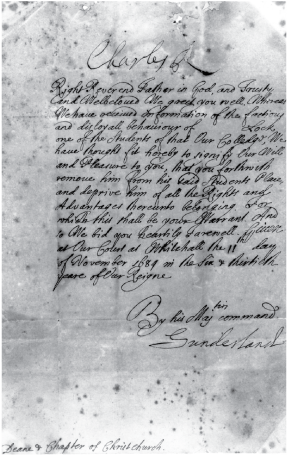 Charles R
Right Reverend Father in God, and Trusty
and Welbeloved We greet you well. Whereas
We have received Information of the factious
and disloyall behaviour of Lock
one of the Students of that Our Colledge, We
have thought fit hereby to signify Our Will
and Pleasure to you, that you forthwith
remove him from his said Students Place
and deprive him of all the Rights and
Advantages thereunto belonging For
which this shall be your Warrant. And
so We bid you heartily Farewell. Given
at Our Court at Whitehall the 11th day
of November 1684 in the Six & thirtieth
yeare of Our Reigne
By his Maty's command
Sunderland
Deane & Chapter of Christchurch.